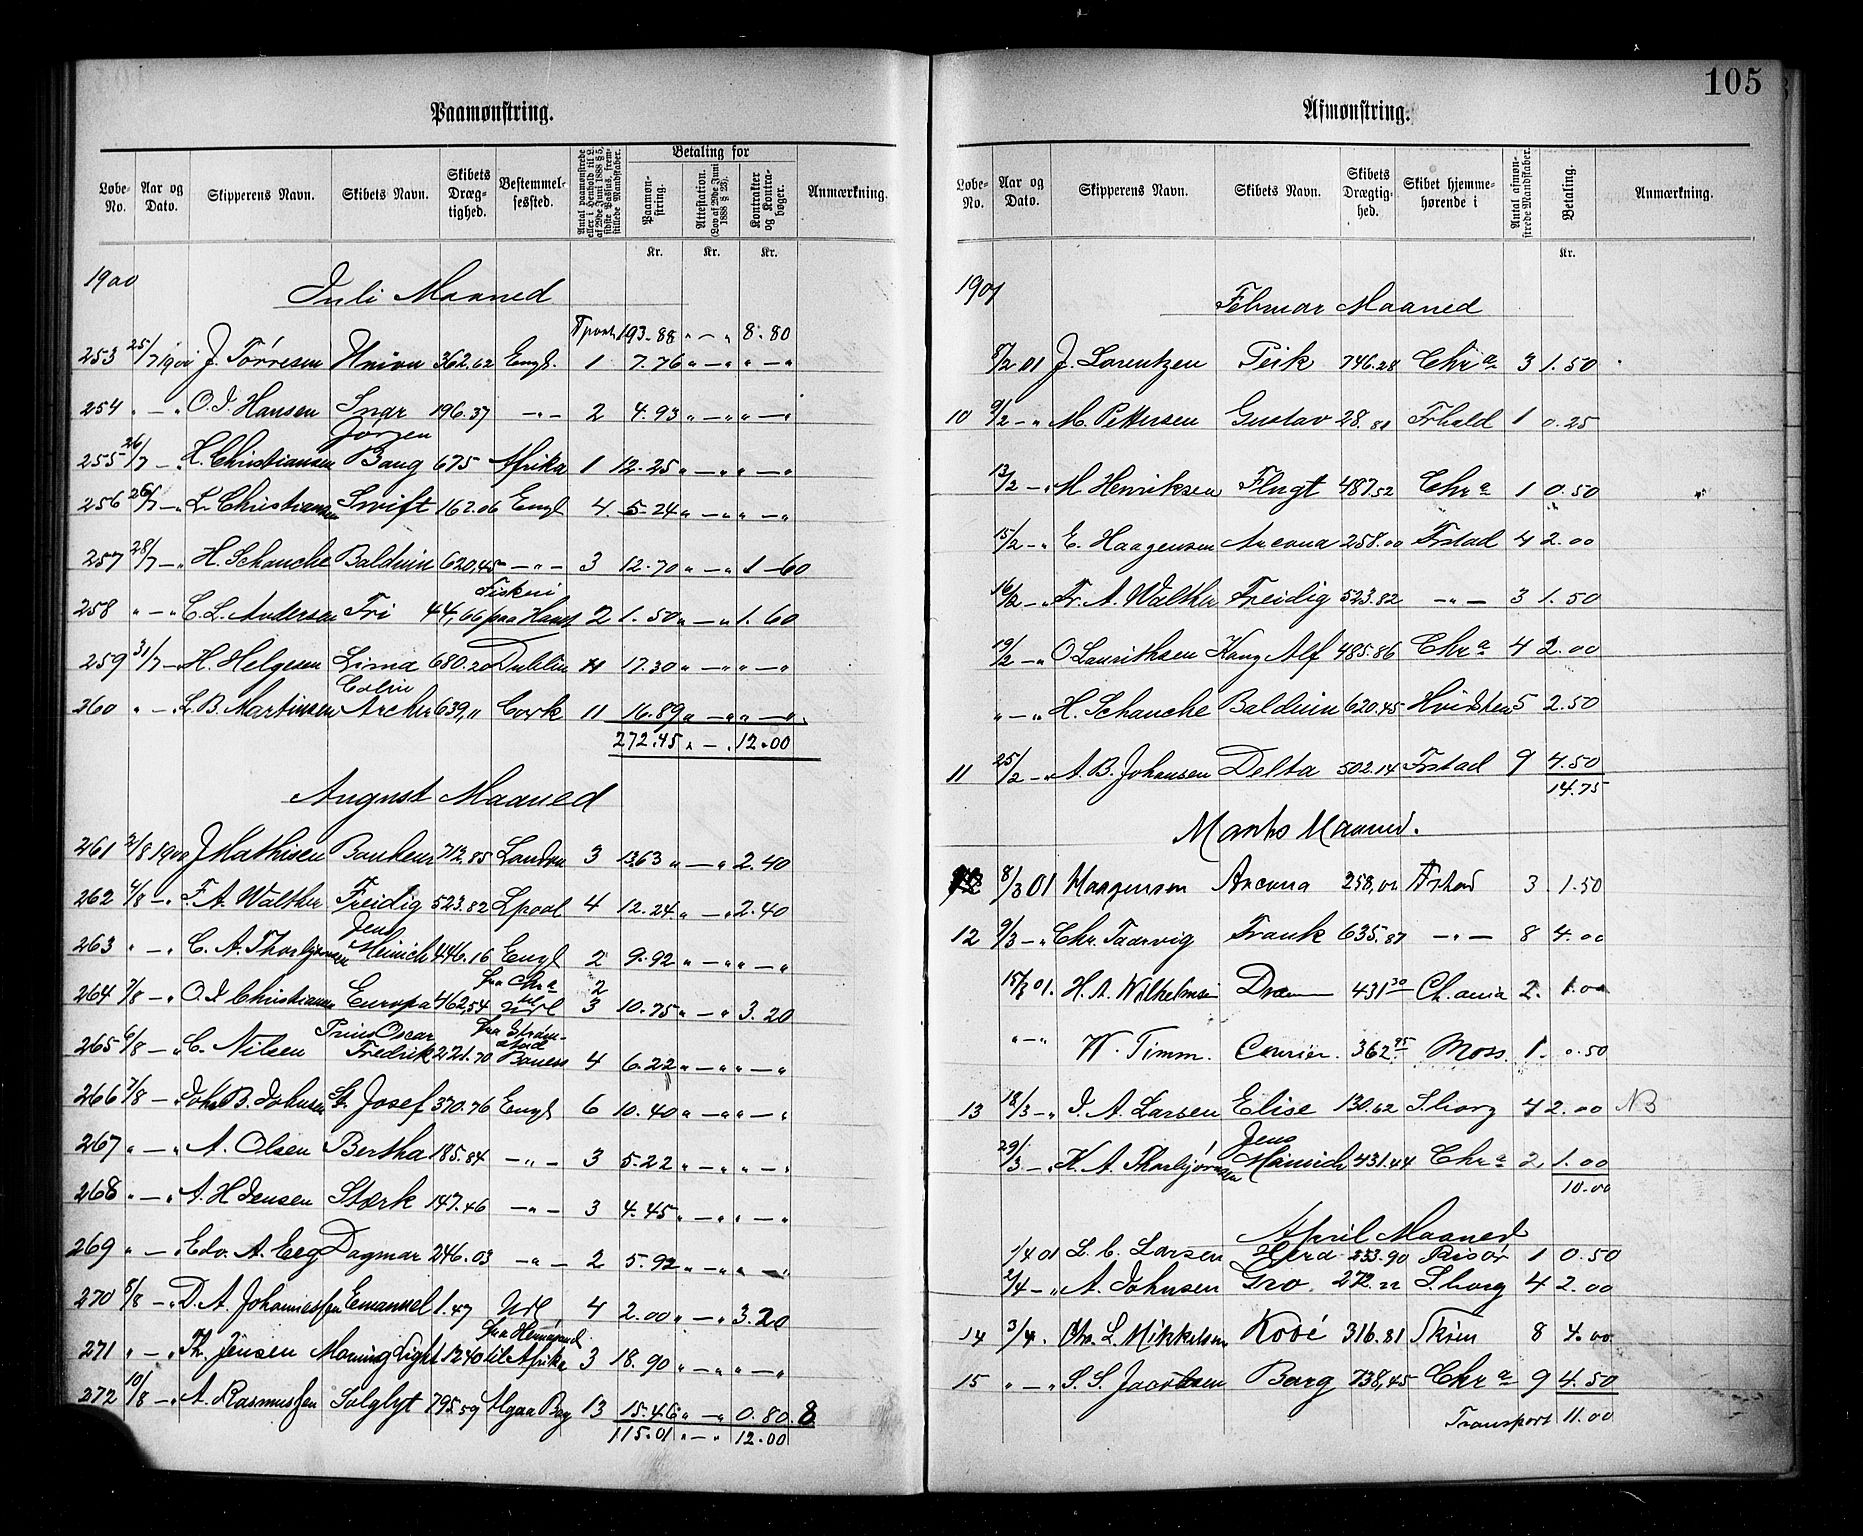 Paamønstring.
Løbe-No. Aar og Dato. Skipperens Navn. Skibets Navn. Skibets Drægtighed. Bestemmelsessted. Antal paamønstrede eller i Henhold til L. af 29de Juni 1888 § 5, sidste Passus, fremstillede Mandskaber. Betaling for Paamønstring. Attestation. (Lov af 29de Juni 1888 § 23). Kontrakter og Kontrabøger. Anmærkning.
Kr. Kr. Kr.
1900 Juli Maaned
Tport. 193.88 " — " 8.80
253 25/7 1900 J. Törresen Union 362.62 Engl. 1 7.76 " — " " — "
254 " — " O. J. Hansen Snar 196.37 — " — 2 4.93 " — " " — "
255 26/7 — " H. Christiansen Jörgen Bang 675 Afrika 1 12.25 " — " " — "
256 26/7 — " L. Christiansen Swift 162.06 Engl 4. 5.24 " — " " — "
257 28/7 — " H. Schanche Baldwin 620,45 — " — 3 12.70 " — " 1 — 60
258 " — " C. L. Andersen Fri 44,66 Fiskeri paa Havet 2 1.50 " — " 1.60
259 31/7 — " H. Helgesen Lima 680.20 Dublin 11 17.30 " — " " — "
260 " — " L. B. Martinsen Colin Archer 639," Cork 11 16.89 " — " " — "
272.45 " — " 12.00
August Maaned
261 2/8 1900 J Mathisen Bonheur 712.85 London 3 13.63 " — " 2.40
262 4/8 — " F. A. Walther Freidig 523.82 Lpool 4 12.24 " — " 2.40
263 " — " C. A. Thorbjørnsen Jens Heinrich 446.16 Engl 2 9.92 " — " " — "
264 7/8 — " O. J. Christiansen Europa 462,54 fra Chr a til Url 2 3 10.75 " — " 3.20
265 6/8 — " C. Nilsen Prins Oscar Fredrik 221.70 fra Strömstad 4 6.22 " — " " — "
266 7/8 — " Joh. B. Johnsen St. Josef 370.76 Engl 6 10.40 " — " " — "
267 " — " A. Olsen Bertha 185.84 — " — 3 5.22 " — " " — "
268 " — " A. H Jensen Stærk 147.46 — " — 3 4.45 " — " " — "
269 " — " Edv. A. Eeg Dagmar 246.03 — " — 2 5.92 " — " " — "
270 8/8 — " D. A. Johannessen Emanuel 1.47 Url 4 2.00 " — " 3.20
271 " — " Th. Jensen Morning Light 1240 fra Hernøsand til Afrika 3 18.90 " — " " — "
272 10/8 — " A. Rasmussen Solglyt 795.59 Algoa Bay 13 15.46 " — " 0.80. 8
115.01 " — " 12.00
105
Afmønstring.
Løbe-No. Aar og Dato. Skipperens Navn. Skibets Navn. Skibets Drægtighed. Skibet hjemmehørende i Antal afmønstrede Mandskaber. Betaling. Anmærkning.
Kr.
1901 Februar Maaned
8/2 01 J. Lorentzen Peik 746.28 Chr a 3 1.50
10 9/2 — " M. Pettersen Gustav 28.81 Frhald 1 0.25
13/2 — " M Henriksen Flugt 487.52 Chr a 1 0.50
15/2 — " E. Haagensen Ancona 258.00 Frstad 4 2.00
16/2 — " Fr. A. Walther Freidig 523.82 — " — 3 1.50
19/2 — " O Laurithsen Kong Alf 485.86 Chr a 4 2.00
" — " H. Schanche Baldwin 620.45 Hvidsten 5 2.50
11 25/2 — " A. B. Johansen Delta 502.14 Frstad 9 4.50
14.75
Marts Maaned.
8/3 01 Haagensen Ancona 258,00 Frstad 3 1.50
12 9/3 — " Chr. Tadsvig Frank 635.87 — " — 8 4.00
15/3 01. H. A. Wilhelmsen 431 30 Ch. ania 2. 1.00
" — " W. Timm. Courier. 362 95 Moss 1. 0.50
13 18/3 — " J. A. Larsen Elise 130.62 S.borg 4 2.00 NB
29/3 — " K. A. Thorbjørnsen Jens Heinrich 431.44 Chr a 2 1.00
10.00
April Maaned
1/4 01 L. C. Larsen Gerd 253.90 Risör 1 0.50
2/4 — " A. Johnsen Gro. 272.22 S.borg 4 2.00
14 3/4. Chr. L. Mikkelsen Kobé 316.81 Skien 8 4.00
15 " — " S. S. Jacobsen Borg 738,45 Chr a 9 4.50
Transport 11.00